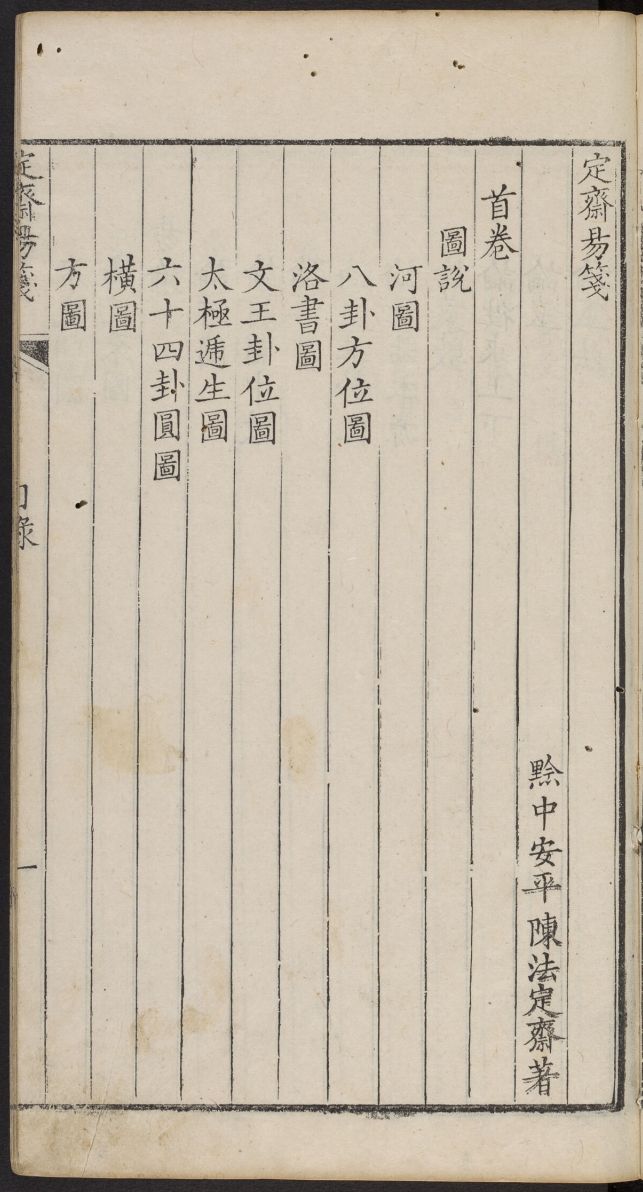 定齋易箋
黔中安平陳法定齋著
首卷
圖說
河圖
八卦方位圖
洛書圖
文王卦位圖
太極遞生圖
六十四卦圓圖
橫圖
方圖
定齋易箋
目錄
一